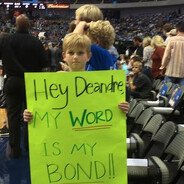 Hey Deandre,
MY WORD
IS MY
BOND!!